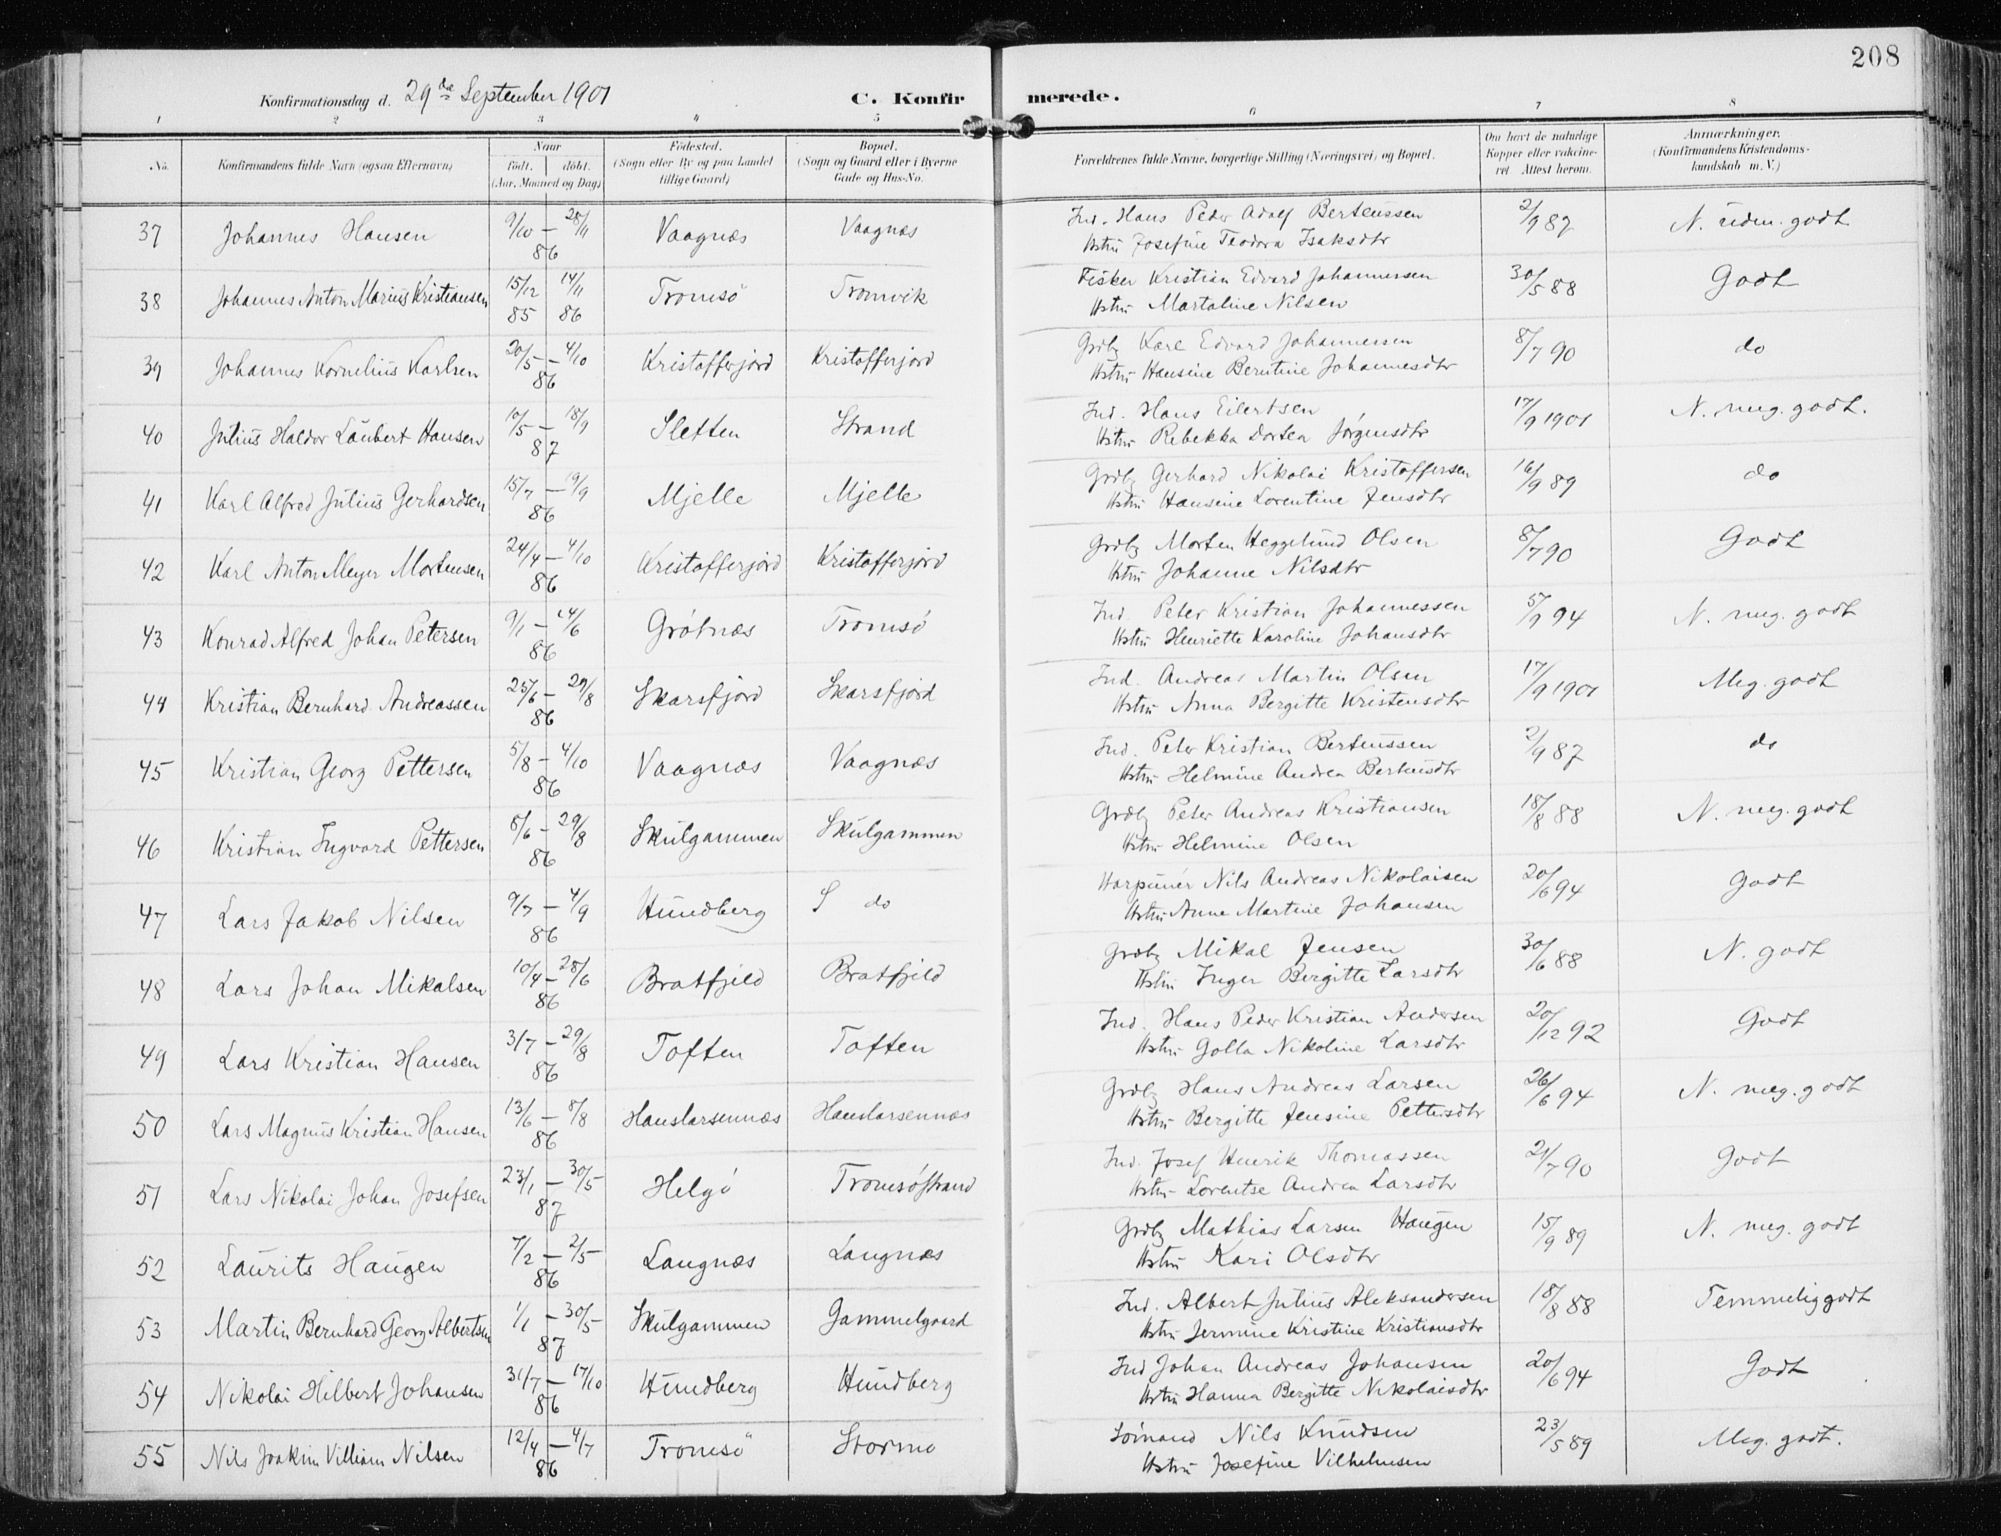 208
Konfirmationsdag d. 29de September 1901 C. Konfirmerede.
1 2 3 4 5 6 7 8
No. Konfirmandens fulde Navn (ogsaa Efternavn) Naar födt. döbt. (Aar, Maaned og Dag) Födested. (Sogn eller By og paa Landet tillige Gaard) Bopæl. (Sogn og Gaard eller i Byerne Gade og Hus-No. Forældrenes fulde Navne, borgerlige Stilling (Næringsvei) og Bopæl. Om havt de naturlige Kopper eller vakcineret. Attest herom. Anmærkninger. (Konfirmandens Kristendomskundskab m. V.)
37 Johannes Hansen 9/10 – 28/11 86 Vaagnæs Vaagnæs Ind. Hans Peder Adolf Berteussen 2/9 87 N. udm. godt
Hstru Josefine Teodora Isaksdtr
38 Johannes Anton Marius Kristiansen 15/12 85 14/11 86 Tromsö Tromvik Fisker Kristian Edvard Johannessen 30/5 88 Godt
Hstru Martaline Nilsen
39 Johannes Kornelius Karlsen 20/5 – 4/10 86 Kristofferjord Kristofferjord Grdbr Karl Edvard Johannessen 8/7 90 do
Hstru Hansine Berntine Johannesdtr
40 Julius Haldor Laubert Hansen 10/5 – 18/9 87 Sletten Strand Ind. Hans Eilertsen 17/9 1901 N. meg. godt.
Hstru Rebekka Dortea Jørgensdtr
41 Karl Alfred Julius Gerhardsen 15/7 – 19/9 86 Mjelle Mjelle Grdbr Gerhard Nikolai Kristoffersen 16/9 89 do
Hstru Hansine Lorentine Jensdtr
42 Karl Anton Meyer Mortensen 24/4 – 4/10 86 Kristofferjord Kristofferjord Grdbr Morten Heggelund Olsen 8/7 90 Godt
Hstru Johanne Nilsdtr
43 Konrad Alfred Johan Petersen 9/1 – 14/6 86 Grøtnæs Tromsø Ind. Peter Kristian Johannessen 5/9 94 N. meg. godt
Hstru Henriette Karoline Johansdtr
44 Kristian Bernhard Andreassen 25/6 – 29/8 86 Skarsfjord Skarsfjord Ind. Andreas Martin Olsen 17/9 1901 Meg. godt
Hstru Anna Bergitte Kristensdtr
45 Kristian Georg Pettersen 5/8 – 4/10 86 Vaagnæs Vaagnæs Ind. Peter Kristian Berteussen 2/9 87 do
Hstru Helmine Andrea Berteusdtr
46 Kristian Ingvard Pettersen 8/6 – 29/8 86 Skulgammen Skulgammen Grdbr Peter Andreas Kristiansen 18/8 88 N. meg. godt
Hstru Helmine Olsen
47 Lars Jakob Nilsen 9/7 – 4/9 86 Hundberg do Harpunér Nils Andreas Nikolaisen 20/6 94 Godt
Hstru Anne Martine Johansen
48 Lars Johan Mikalsen 10/4 – 28/6 86 Bratfjeld Bratfjeld Grdbr Mikal Jensen 30/6 88 N. godt
Hstru Inger Bergitte Larsdtr
49 Lars Kristian Hansen 3/7 – 29/8 86 Toften Toften Ind. Hans Peder Kristian Andersen 20/12 92 Godt
Hstru Golla Nikoline Larsdtr
50 Lars Magnus Kristian Hansen 13/6 – 8/8 86 Hanslarsennæs Hanslarsennæs Grdbr Hans Andreas Larsen 26/6 94 N. meg. godt
Hstru Bergitte Jensine Pettersdtr
51 Lars Nikolai Johan Josefsen 23/1 – 30/5 87 Helgø Tromsøstrand Ind. Josef Henrik Thomassen 21/7 90 Godt
Hstru Lorentse Andrea Larsdtr
52 Laurits Haugen 7/2 – 2/5 86 Langnæs Langnæs Grdbr Mathias Larsen Haugen 15/9 89 N. meg. godt
Hstru Kari Olsdtr
53 Martin Bernhard Georg Albertsen 1/1 – 30/5 87 Skulgammen Gammelgaard Ind. Albert Julius Aleksandersen 18/8 88 Temmelig godt
Hstru Jermine Kristine Kristiansdtr
54 Nikolai Hilbert Johansen 31/7 – 17/10 86 Hundberg Hundberg Ind Johan Andreas Johansen 20/6 94 Godt
Hstru Hanna Bergitte Nikolaisdtr
55 Nils Joakim Villiam Nilsen 12/4 – 4/7 86 Tromsö Stormo Sømand Nils Knudsen 23/5 89 Meg. godt.
Hstru Josefine Vilhelmsen